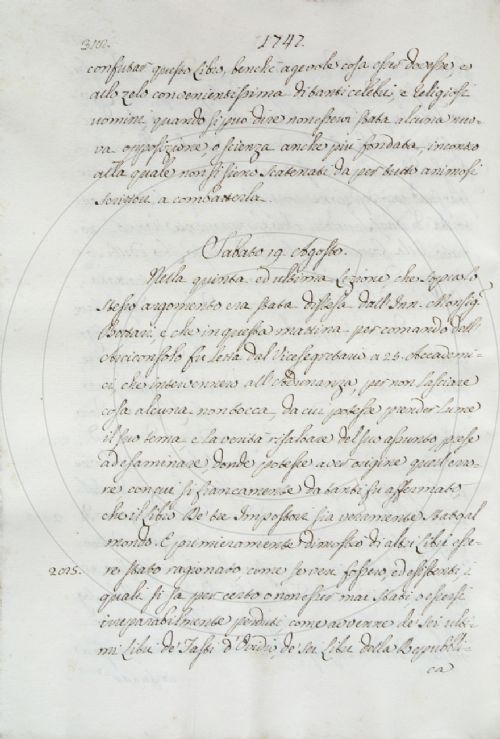 310. 1747.
confutar questo Libro, benchè agevole cosa esser dovesse, e
allo zelo convenientissima di tanti celebri, e religiosi
uomini, quando si può dire non esservi stata alcuna nuo-
va opposizione, o scienza anche più fondata, incontro
alla quale non si siano scatenati da per tutto animosi
scrittori a combatterla.
Sabato 19. Agosto.
Nella quinta ed ultima Lezione, che sopra lo
stesso argomento era stata distesa dall' Inn. Monsig.
Bottari, e che in questa mattina per comando dell'
Arciconsolo fu letta dal Vicesegretario a 25. Accademi-
ci, che intervennero all' Adunanza, per non lasciare
cosa alcuna non tocca, da cui potesse prender lume
il suo tema e la verità risaltare del suo assunto, prese
ad esaminare donde potesse aver origine quest' erro-
re con cui si francamente da tanti si è affermato,
che il libro De tre Impostori sia veramente stato al
mondo. E primieramente dimostrò di altri Libri esse-
2025. re stato ragionato, come se veri fossero, ed esistenti, i
quali si sa per certo o non esser mai stati o essersi
irreparabilmente perduti, come avvenne de sei ulti-
mi Libri de' Fasti d'Ovidio, de' sei Libri della Repubbli-
ca